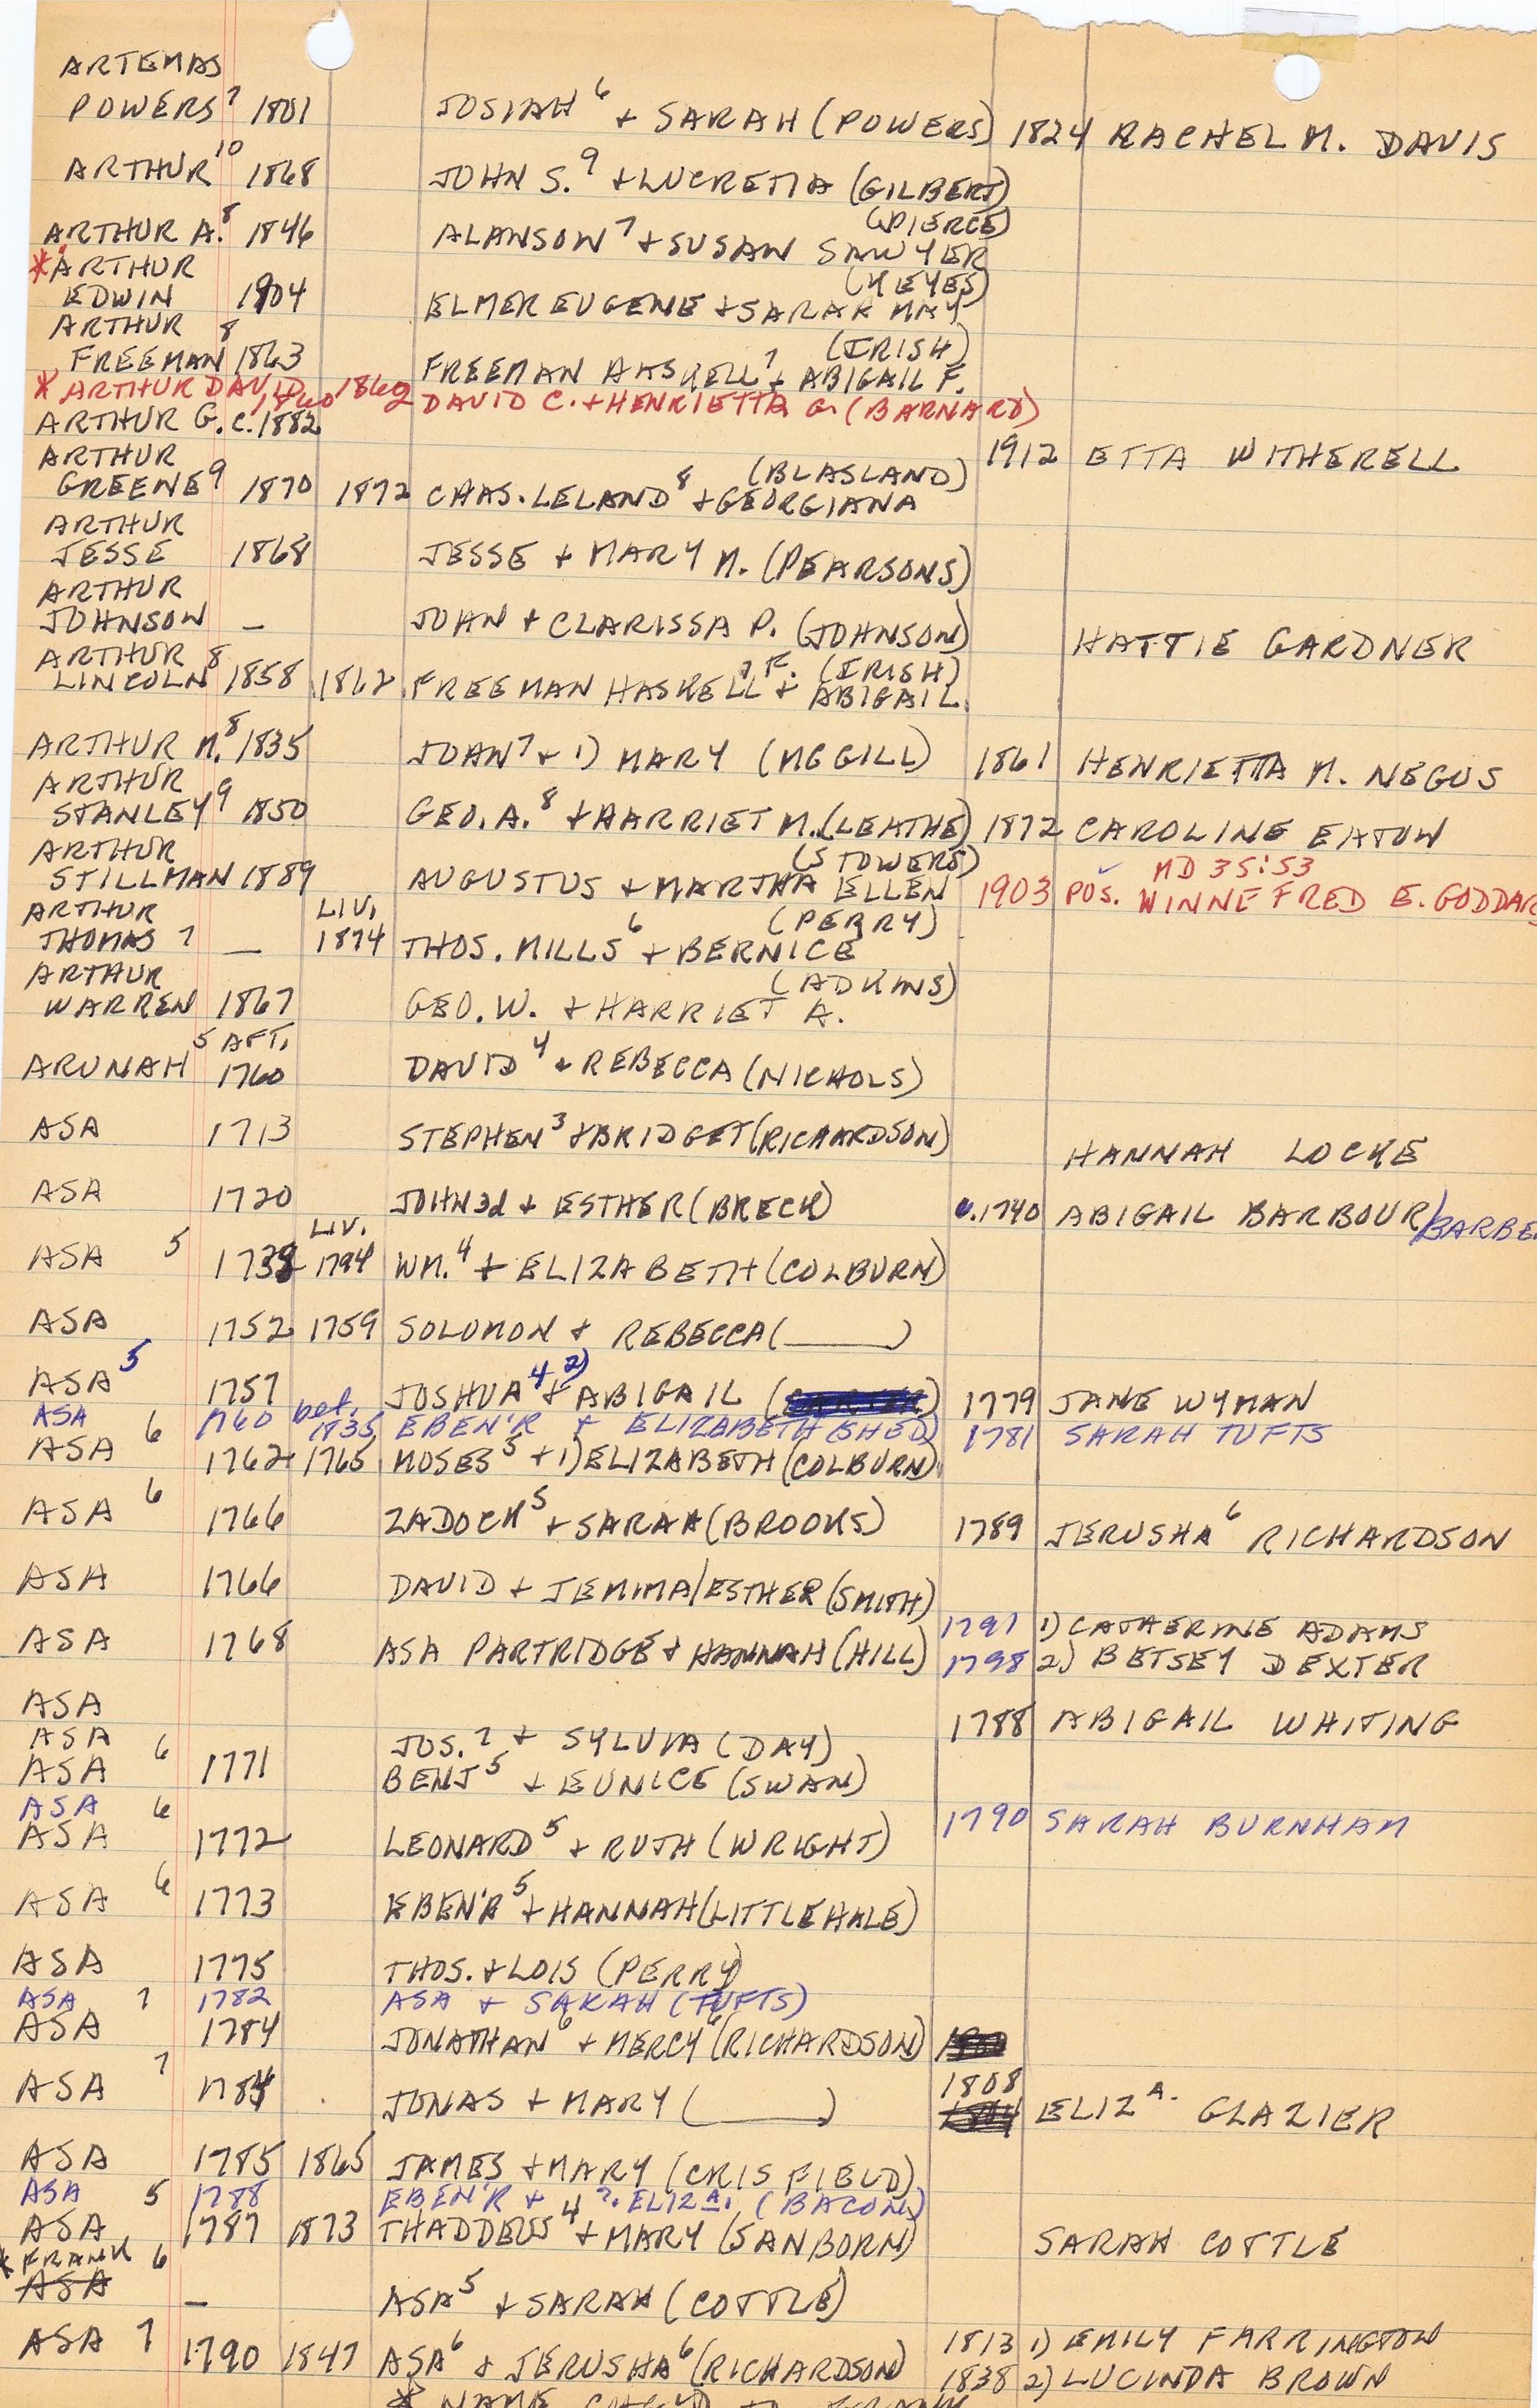 ARTEMAS
POWERS⁷ 1801 JOSIAH⁶ + SARAH (POWERS) 1824 RACHEL M. DAVIS
ARTHUR¹⁰ 1868 JOHN S.⁹ + LUCRETIA (GILBERT)
(PIERCE)
ARTHUR A.⁸ 1846 ALANSON⁷ + SUSAN SAWYER
*ARTHUR (KEYES)
EDWIN 1904 ELMER EUGENE + SARAH MAY
ARTHUR (IRISH)
FREEMAN⁸ 1863 FREEMAN HASKELL⁷ + ABIGAIL F.
* ARTHUR DAVID 1860 1862 DAVID C. + HENRIETTA G. (BARNARD)
ARTHUR G. C. 1882 1912 ETTA WITHERELL
ARTHUR (BLASLAND)
GREENE⁹ 1870 1872 CHAS. LELAND⁸ + GEORGIANA
ARTHUR
JESSE 1868 JESSE + MARY M. (PEARSONS)
ARTHUR
JOHNSON — JOHN + CLARISSA P. (JOHNSON) HATTIE GARDNER
ARTHUR F. (IRISH)
LINCOLN⁸ 1858 1862 FREEMAN HASKELL⁷ + ABIGAIL
ARTHUR M.⁸ 1835 JOHN⁷ + 1) MARY (MCGILL) 1861 HENRIETTA M. NEGUS
ARTHUR
STANLEY⁹ 1850 GEO. A.⁸ + HARRIET M. (LEATHE) 1872 CAROLINE EATON
ARTHUR (STOWERS) MD 35:53
STILLMAN 1889 AUGUSTUS + MARTHA ELLEN 1903 POS. WINNEFRED E. GODDAR
ARTHUR LIV. (PERRY)
THOMAS⁷ — 1874 THOS. MILLS⁶ + BERNICE
ARTHUR (ADKINS)
WARREN 1867 GEO. W. + HARRIET A.
AFT.
ARUNAH⁵ 1760 DAVID⁴ + REBECCA (NICHOLS)
ASA 1713 STEPHEN³ + BRIDGET (RICHARDSON) HANNAH LOCKE
ASA 1720 JOHN 3d + ESTHER (BRECK) c.1740 ABIGAIL BARBOUR/BARBE
LIV.
ASA⁵ 1738 1794 WM.⁴ + ELIZABETH (COLBURN)
ASA 1752 1759 SOLOMON + REBECCA (______)
ASA⁵ 1757 JOSHUA⁴ + 2) ABIGAIL ( ) 1779 JANE WYMAN
ASA 1760 bef. 1835 EBEN'R + ELIZABETH (SHED) 1781 SARAH TUFTS
ASA⁶ 1762 1765 MOSES⁵ + 1) ELIZABETH (COLBURN)
ASA⁶ 1766 ZADOCK⁵ + SARAH (BROOKS) 1789 JERUSHA⁶ RICHARDSON
ASA 1766 DAVID + JEMIMA/ESTHER (SMITH)
1797 1) CATHERINE ADAMS
ASA 1768 ASA PARTRIDGE + HANNAH (HILL) 1798 2) BETSEY DEXTER
ASA 1788 ABIGAIL WHITING
ASA JOS.⁷ + SYLVIA (DAY)
ASA⁶ 1771 BENJ⁵ + EUNICE (SWAN)
ASA 1790 SARAH BURNHAM
ASA⁶ 1772 LEONARD⁵ + RUTH (WRIGHT)
ASA⁶ 1773 EBEN'R⁵ + HANNAH (LITTLEHALE)
ASA 1775 THOS. + LOIS (PERRY)
ASA 1782 ASA + SARAH (TUFTS)
ASA⁷ 1784 JONATHAN⁶ + MERCY⁶ (RICHARDSON)
1808
ASA⁷ 1784 JONAS + MARY (______) ELIZᴬ. GLAZIER
ASA 1785 1865 JAMES + MARY (CRISFIELD)
ASA 1788 EBEN'R + ?. ELIZᴬ. (BACON)
ASA⁵ 1787 1873 THADDEUS⁴ + MARY (SANBORN) SARAH COTTLE
* FRANK⁶
ASA — ASA⁵ + SARAH (COTTLE)
ASA⁷ 1790 1847 ASA⁶ + JERUSHA⁶ (RICHARDSON) 1813 1) EMILY FARRINGTON
1838 2) LUCINDA BROWN
* NAME